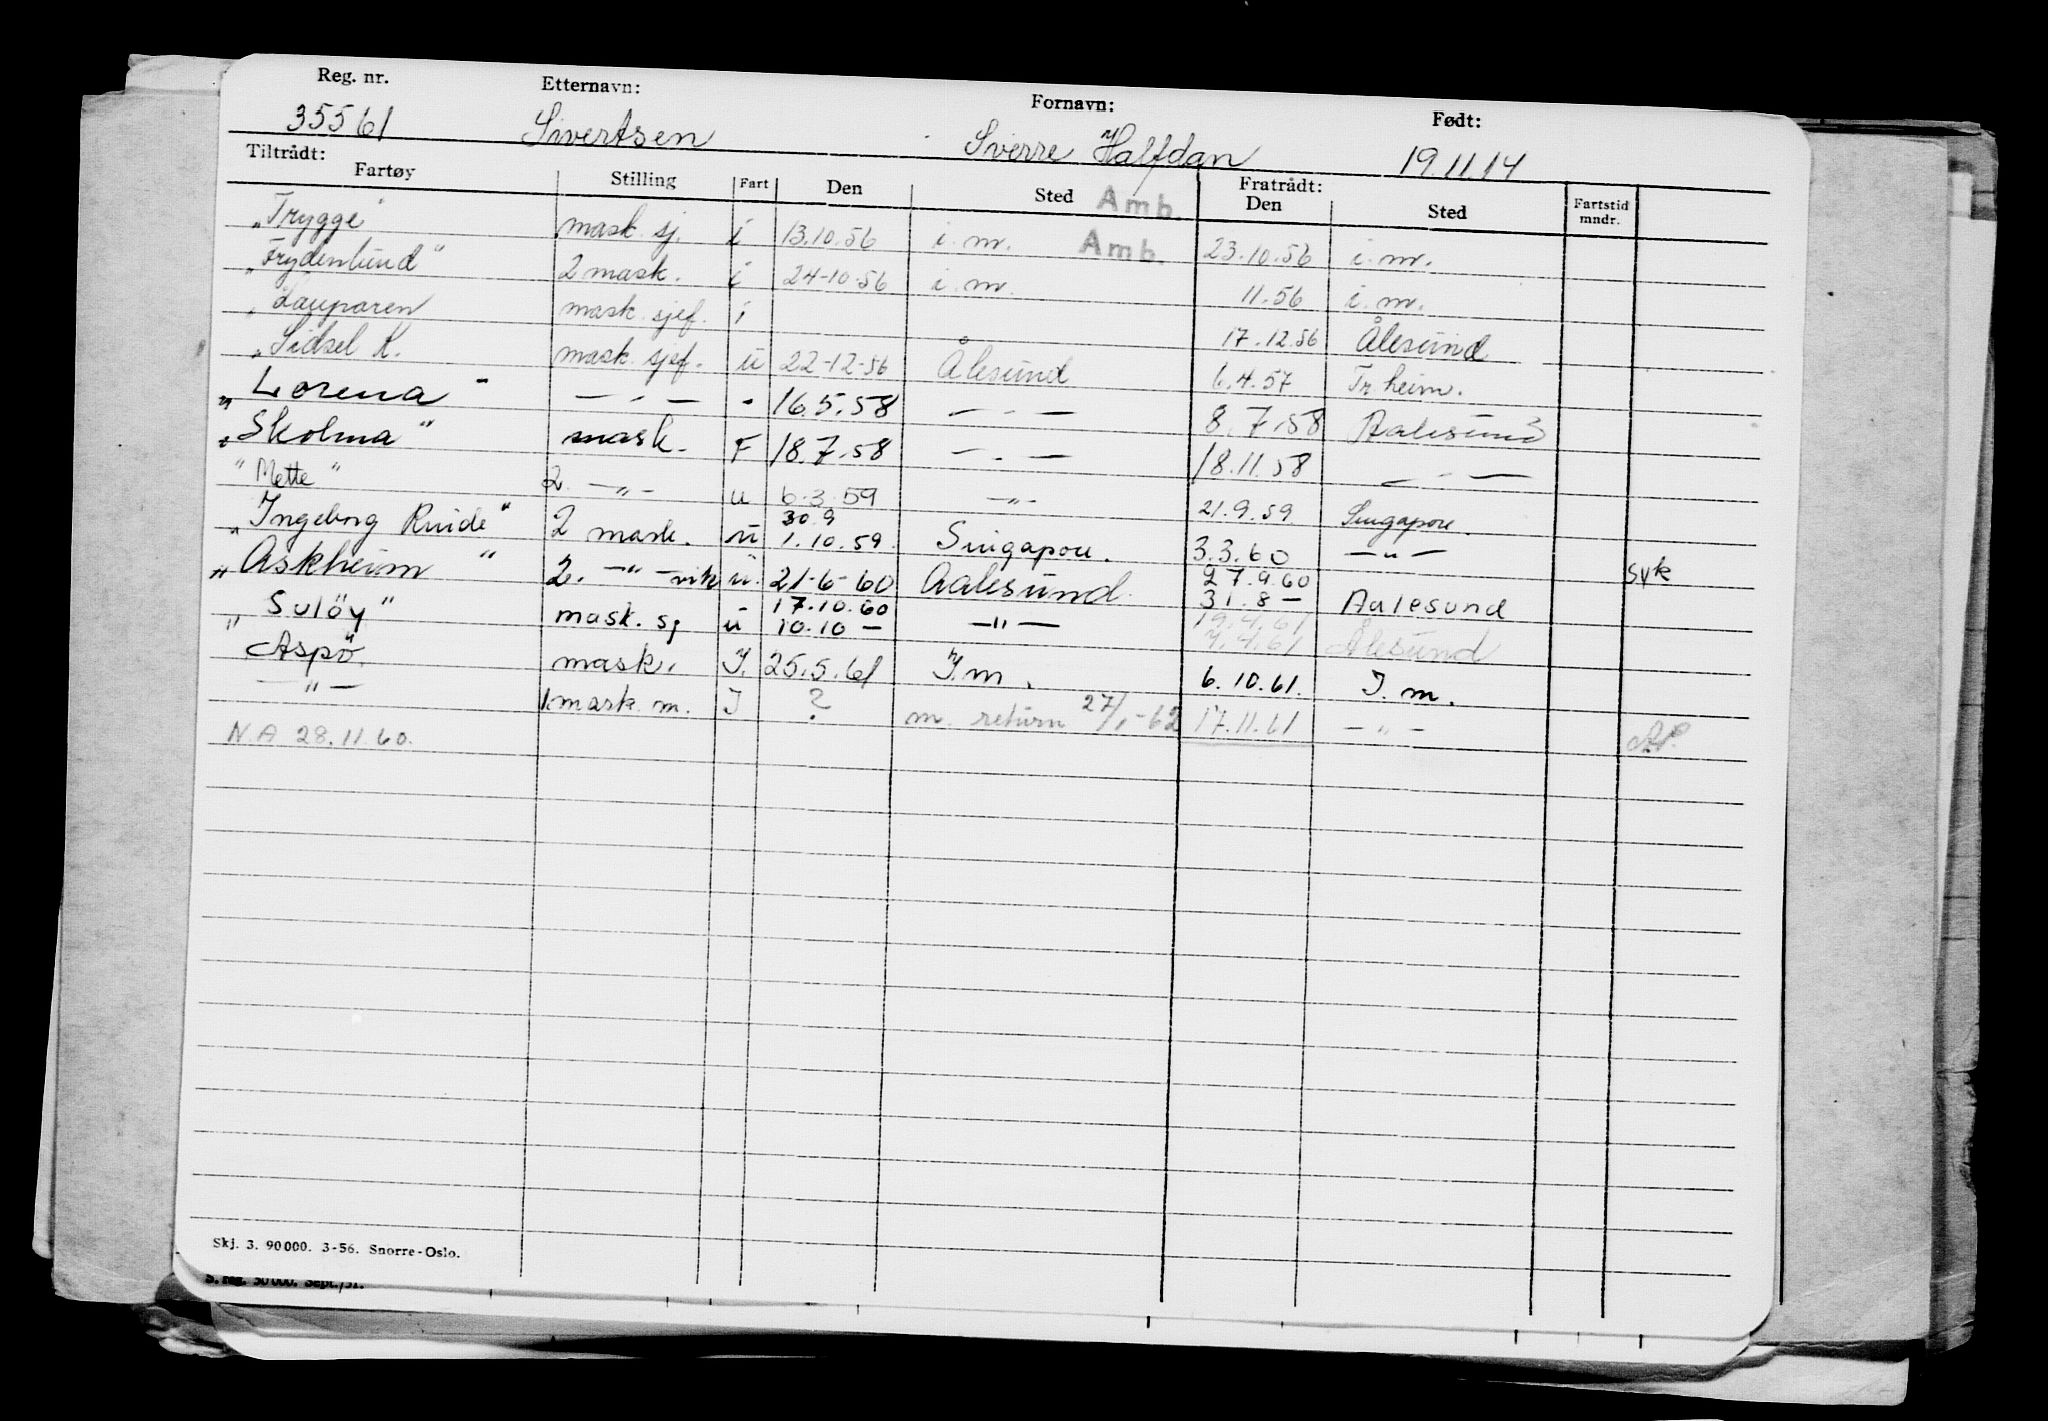 Reg. nr. Etternavn: Fornavn: Født:
35561 Sivertsen Sverre Halfdan 19.11.14
Tiltrådt: Fratrådt:
Fartøy Stilling Fart Den Sted Amb. Den Sted Fartstid mndr.
"Trygge" mask. sj. i 13.10.56 i. m. Amb. 23.10.56 i. m.
"Frydenlund" 2 mask. i 24-10-56 i. m. 11.56 i. m.
"Lauparen mask. sjef. i 17.12.56 Ålesund
"Sidsel K. mask. sjef. u 22-12-56 Ålesund 6.4.57 Tr.heim.
"Lorena" — - — - 16.5.58 — - — 8.7.58 Aalesund
"Skolma" mask. F 18.7.58 — - — 18.11.58 — - —
"Mette" 2. —"— u 6.3.59 —"— 21.9.59 Singapore
30.9
"Ingeborg 2 mask. u 1.10.59. Singapore. 3.3.60 —"— syk
27.9.60
"Askheim" 2. —"— vik u. 21-6-60 Aalesund. 31.8 — Aalesund
17.10.60 19.4.61
"Suløy" mask. sj u 10.10 — —"— 7.4.61 Ålesund
"Aspö. mask. J. 25.5.61 J.m. 6.10.61. J. m.
—"— 1.mask. m. J ? m. return 27/1-62 17.11.61 —"—
N.A 28.11.60.
Skj. 3. 90000. 3-56. Snorre-Oslo.
S. reg. 50000. Sept./51.